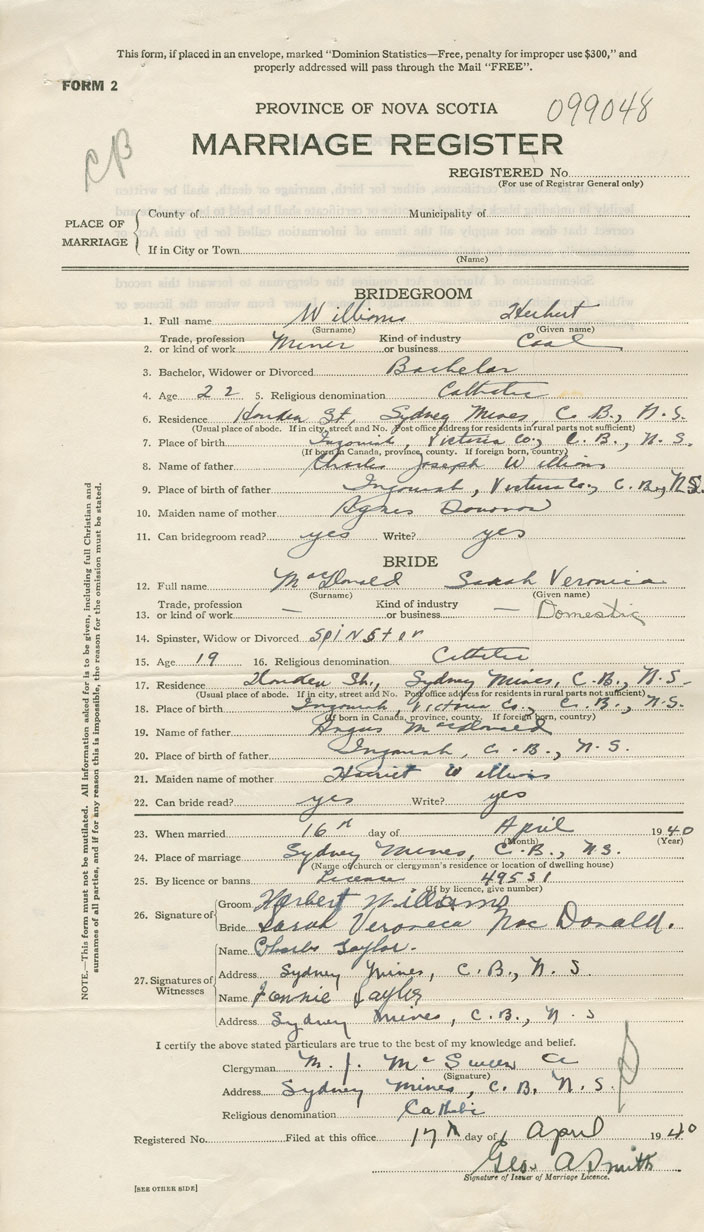 This form, if placed in an envelope, marked "Dominion Statistics—Free, penalty for improper use $300," and
properly addressed will pass through the Mail "FREE".
FORM 2
PROVINCE OF NOVA SCOTIA 099048
MARRIAGE REGISTER
CB
REGISTERED No.
(For use of Registrar General only)
PLACE OF MARRIAGE
County of Municipality of
If in City or Town
(Name)
BRIDEGROOM
1. Full name Williams Herbert
(Surname) (Given name)
2. Trade, profession or kind of work Miner Kind of industry or business Coal
3. Bachelor, Widower or Divorced Bachelor
4. Age 22 5. Religious denomination Catholic
6. Residence St., Sydney Mines, C.B., N.S.
(Usual place of abode. If in city, street and No. Post office address for residents in rural parts not sufficient)
7. Place of birth Ingonish, Victoria Co., C.B., N.S.
(If born in Canada, province, county. If foreign born, country)
8. Name of father Charles Joseph Williams
9. Place of birth of father Ingonish, Victoria Co., C.B., N.S.
10. Maiden name of mother Agnes Donovan
11. Can bridegroom read? yes Write? yes
BRIDE
12. Full name MacDonald Sarah Veronica
(Surname) (Given name)
13. Trade, profession or kind of work — Kind of industry or business — Domestic
14. Spinster, Widow or Divorced Spinster
15. Age 19 16. Religious denomination Catholic
17. Residence St., Sydney Mines, C.B., N.S.
(Usual place of abode. If in city, street and No. Post office address for residents in rural parts not sufficient)
18. Place of birth Ingonish, Victoria Co., C.B., N.S.
(If born in Canada, province, county. If foreign born, country)
19. Name of father Angus MacDonald
20. Place of birth of father Ingonish, C.B., N.S.
21. Maiden name of mother Harriet Williams
22. Can bride read? yes Write? yes
23. When married 16th day of April 1940
(Month) (Year)
24. Place of marriage Sydney Mines, C.B., N.S.
(Name of church or clergyman's residence or location of dwelling house)
25. By licence or banns Licence 49531
(If by licence, give number)
26. Signature of
Groom Herbert Williams
Bride Sarah Veroneca Mac Donald.
27. Signatures of Witnesses
Name Charles Taylor.
Address Sydney Mines, C.B., N.S.
Name Jennie Taylor
Address Sydney Mines, C.B., N.S
I certify the above stated particulars are true to the best of my knowledge and belief.
Clergyman M. J. McSween
(Signature)
Address Sydney Mines, C.B, N.S.
Religious denomination Catholic
Registered No. Filed at this office 17th day of April 1940
Geo. A Smith
Signature of Issuer of Marriage Licence.
[SEE OTHER SIDE]
NOTE.—This form must not be mutilated. All information asked for is to be given, including full Christian and
surnames of all parties, and if for any reason this is impossible, the reason for the omission must be stated.